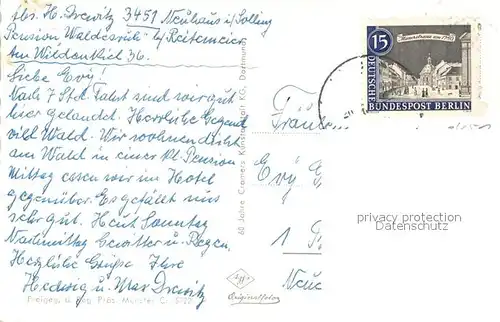 Abs. H. Drewitz 3451 Neuhaus i/Solling
Pension Waldesruh b/Reitemeier
Am Wildenkiel 36.
Liebe Evy!
Nach 7 Std. Fahrt sind wir gut
hier gelandet. Herrliche Gegend
viel Wald. Wir wohnen dicht
am Wald in einer kl. Pension
Mittag essen wir im Hotel
gegenüber. Es gefällt uns
sehr gut. Heut Sonntag
Nachmittag Gewitter u. Regen.
Herzliche Grüße Ihre
Hedwig u. Max Drewitz
Freigeg. d. Reg. Präs. Münster C. 5727
60 Jahre Cramers Kunstanstalt KG, Dortmund
Originalfoto
15
DEUTSCHE
BUNDESPOST BERLIN
Evy
1
privacy protection
Datenschutz